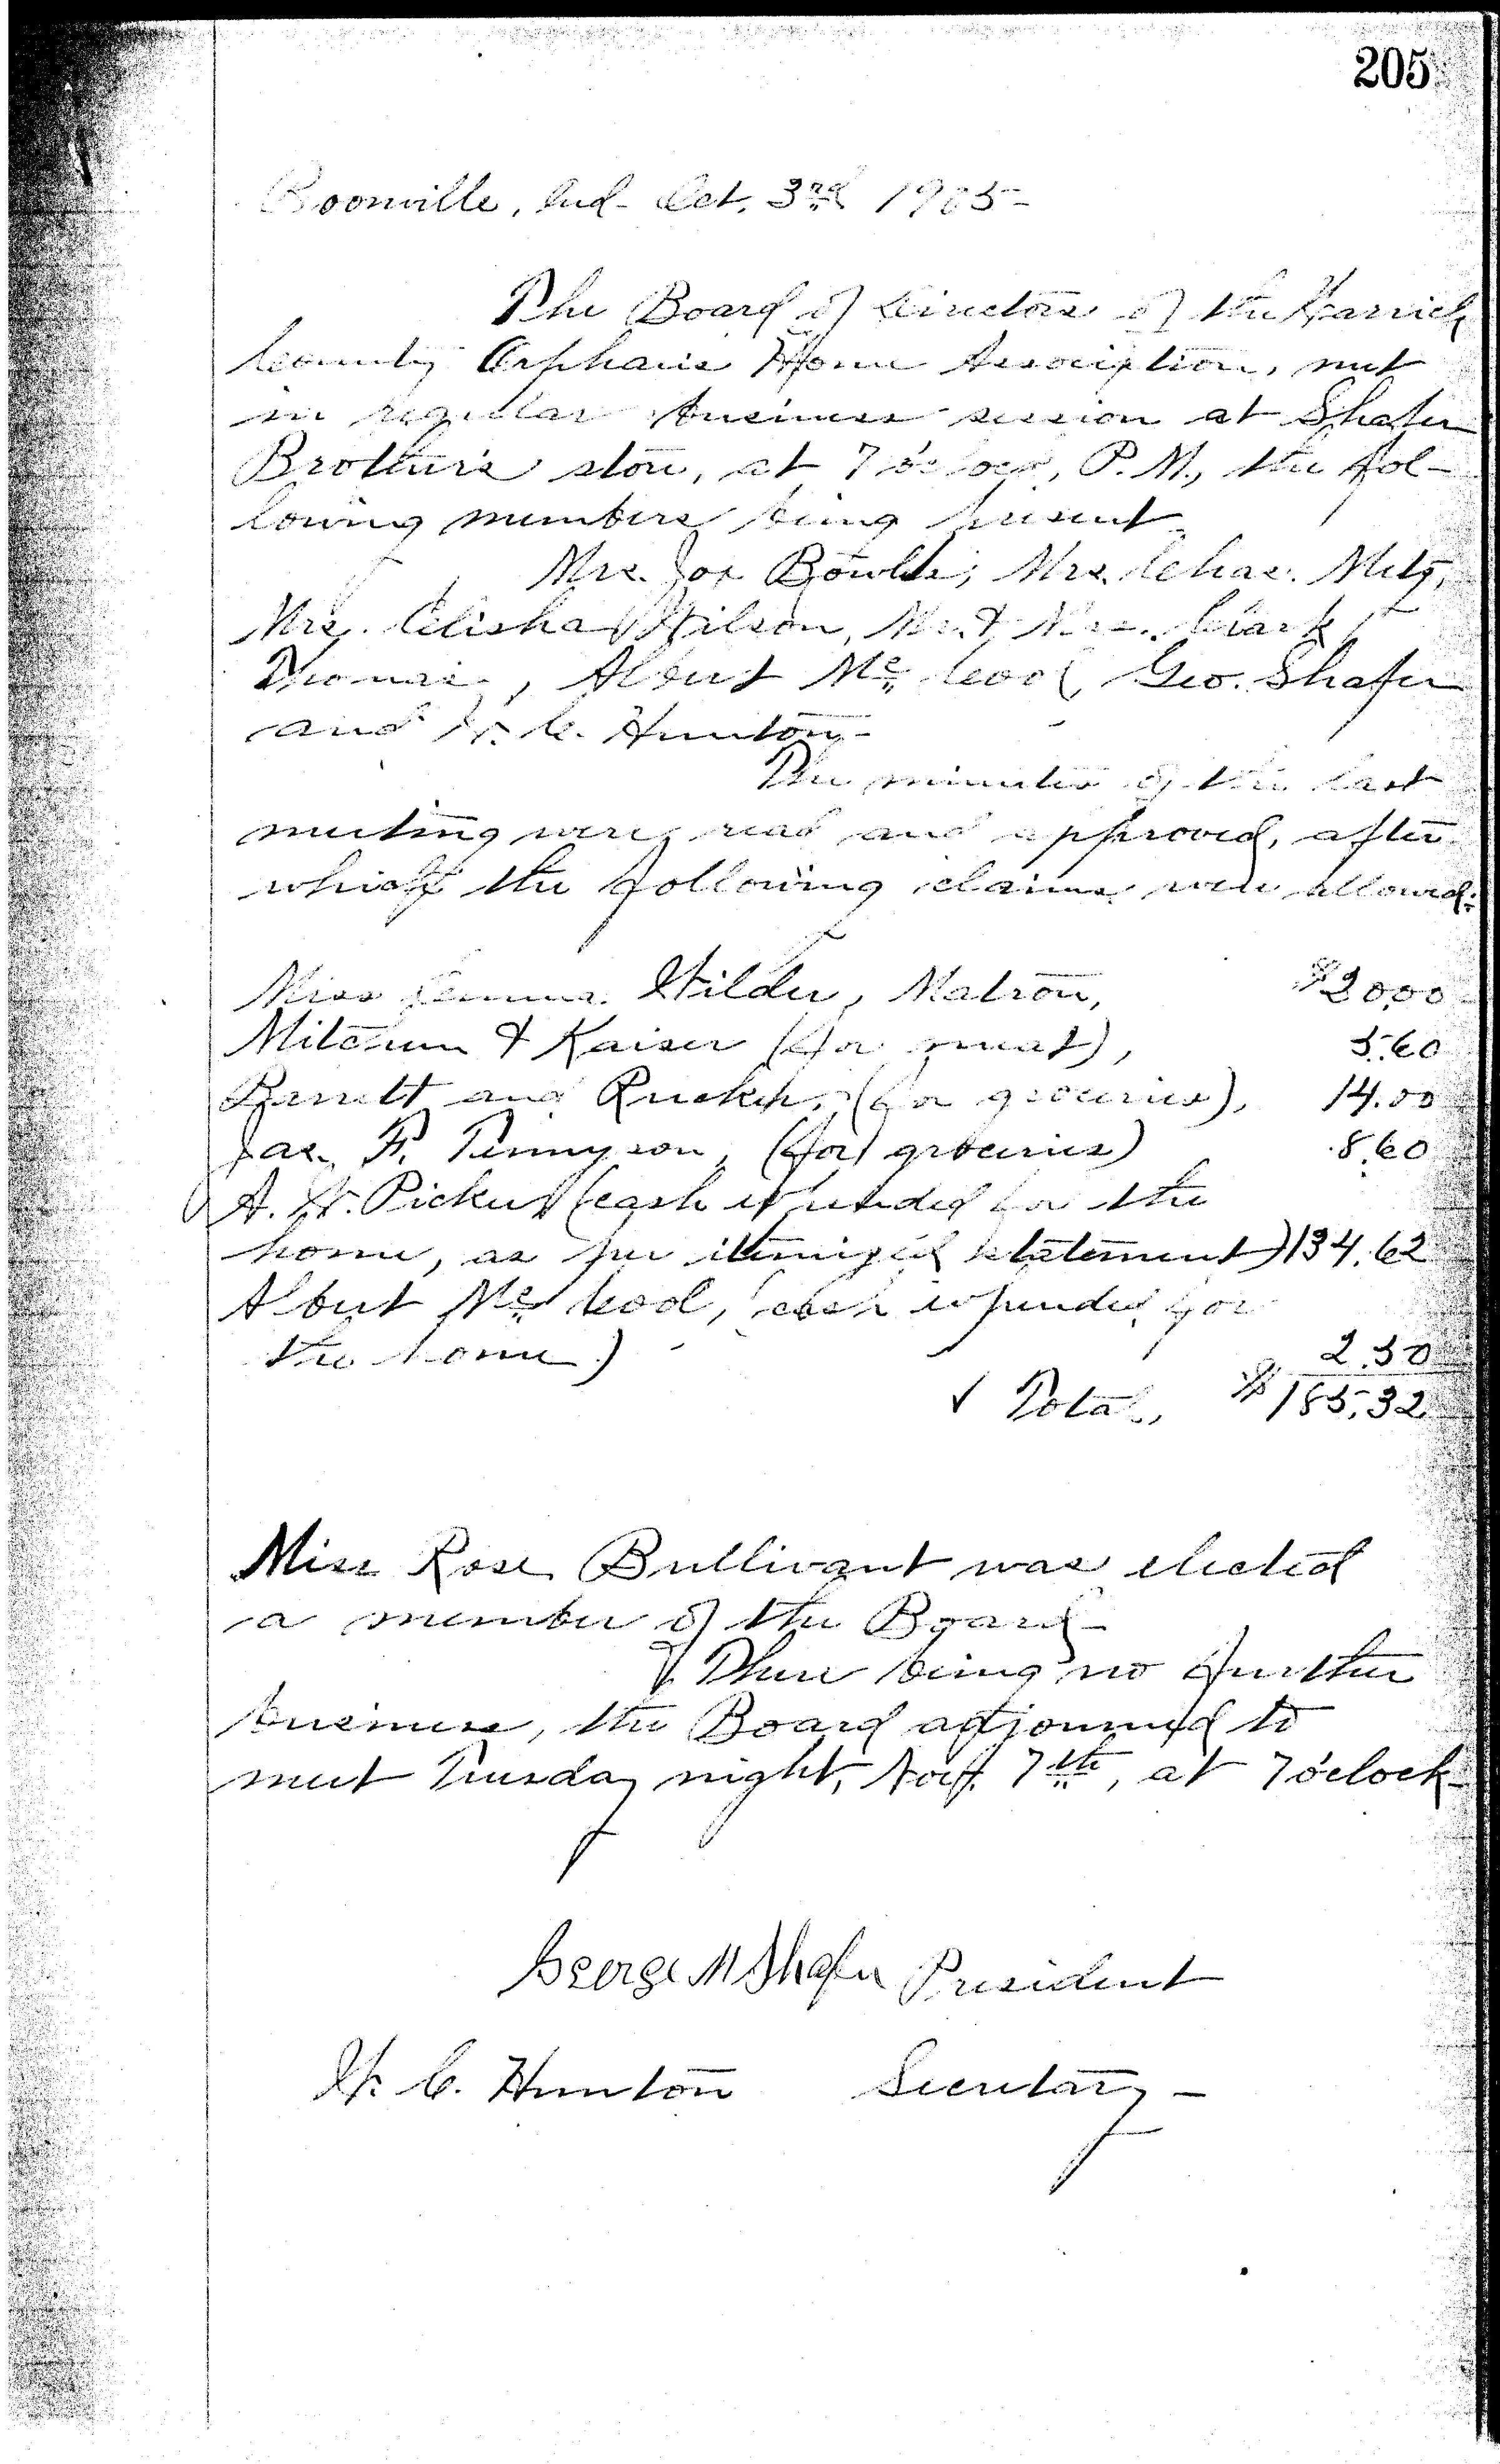 205
Boonville, Ind- Oct, 3rd 1905-
The Board of Directors of the Warrick
County Orphans Home Association, met
in regular business session at Shafer
Brother's store, at 7 o'clock, P. M., the fol-
lowing members being present
Mrs. Joe Bowles, Mrs. Chas. Metz,
Mrs. Elisha Wilson, Mr. & Mrs. Clark
Thomas, Albert McCool, Geo. Shafer
and W. C. Hunton-
The minutes of the last
meeting were read and approved, after
which the following claims were allowed:
Miss Emma Wilder, Matron, $20.00
Mitchum & Kaiser (for meat), 5.60
Barrett and (for groceries), 14.00
Jas. F. Tennyson, (for groceries) 8.60
A. W. Picker (cash expended for the
home, as per itemized statement) 134.62
Albert McCool, (cash expended for
the home) 2.50
Total, $185.32
Miss Rose Bullivant was elected
a member of the Board-
There being no further
business, the Board adjourned to
meet Tuesday night, Nov. 7th, at 7 o'clock-
George M Shafer President
W. C. Hunton Secretary-